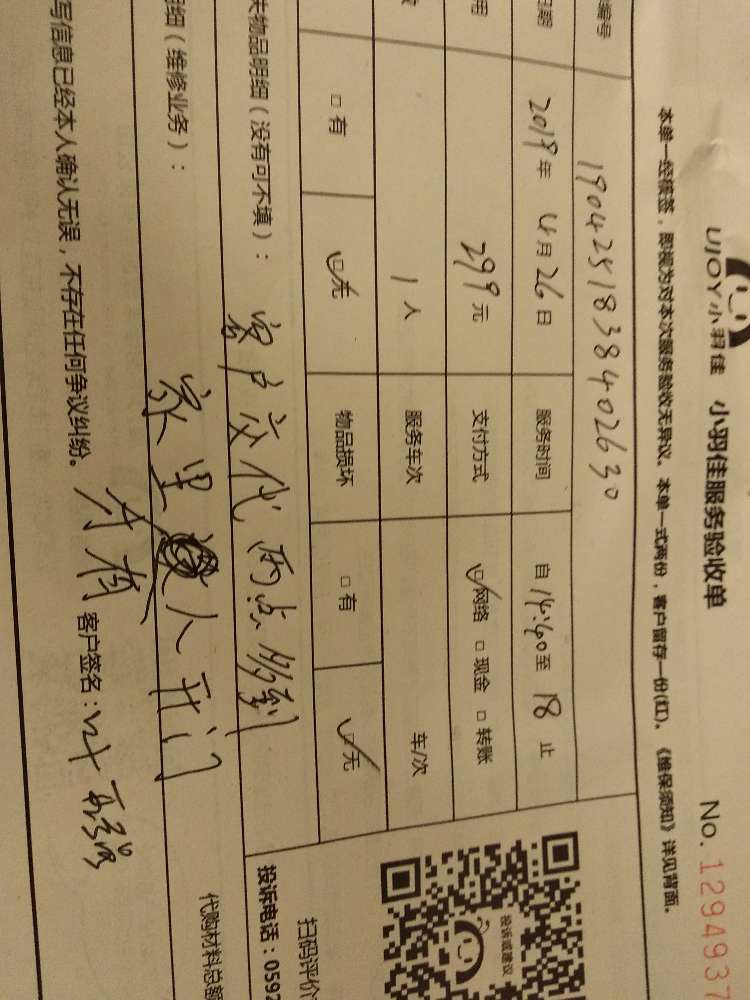 UJOY小羽佳 小羽佳服务验收单
No. 1294937
本单一经接签，即视为对本次服务验收无异议。本单一式两份，客户留存一份(红)。《维保须知》详见背面。
编号 1904251838402630
日期 2019年 4月 26日 服务时间 自 14:40 至 18 止
用 299元 支付方式 ☑网络 □现金 □转账
1人 服务车次 车/次
□有 ☑无 物品损坏 □有 ☑无
失物品明细（没有可不填）： 客户交代两点多到
细（维修业务）： 家里 人开门
写信息已经本人确认无误，不存在任何争议纠纷。
客户签名：
投诉或建议
扫码评价
投诉电话：0592
代购材料总额